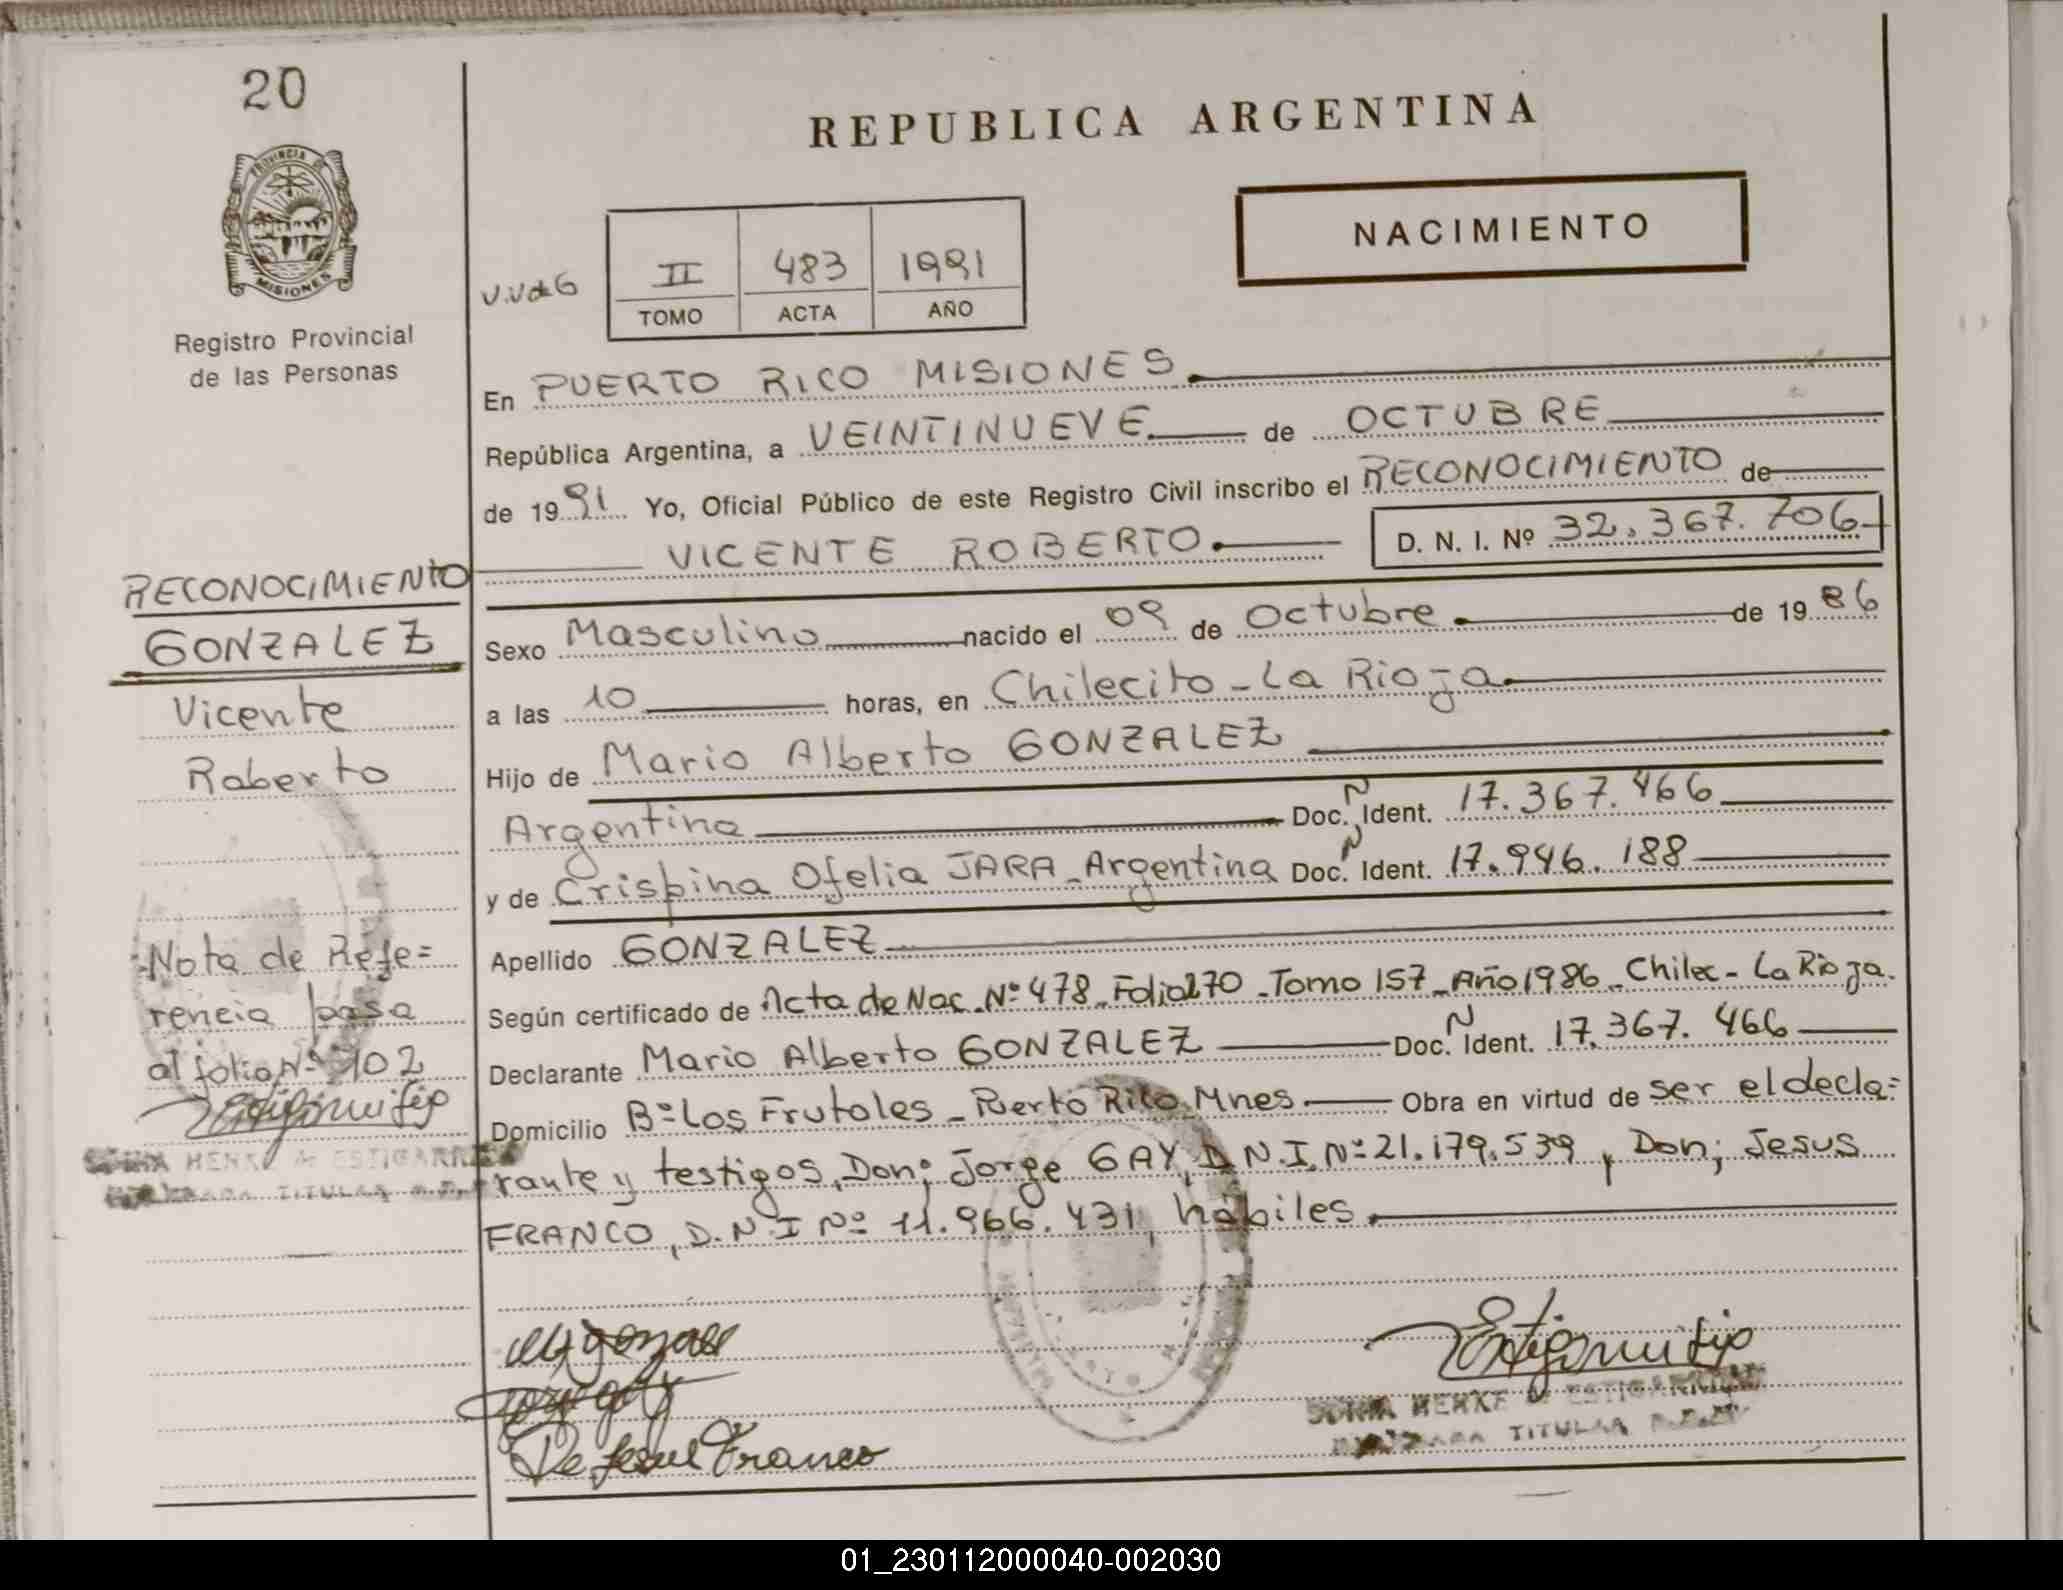 20
PROVINCIA DE
MISIONES
Registro Provincial
de las Personas
REPUBLICA ARGENTINA
NACIMIENTO
V.V de G
II 483 1991
TOMO ACTA AÑO
En PUERTO RICO MISIONES
República Argentina, a VEINTINUEVE de OCTUBRE
de 1991 Yo, Oficial Público de este Registro Civil inscribo el RECONOCIMIENTO de
VICENTE ROBERTO D. N. I. Nº 32.367.706
Sexo Masculino nacido el 09 de Octubre de 1986
a las 10 horas, en Chilecito - La Rioja
Hijo de Mario Alberto GONZALEZ
Argentina Doc. N Ident. 17.367.466
y de Crispina Ofelia JARA - Argentina Doc. N Ident. 17.946.188
Apellido GONZALEZ
Según certificado de Acta de Nac. Nº 478 - Folio 270 - Tomo 157 - Año 1986 - Chilec - La Rioja.
Declarante Mario Alberto GONZALEZ Doc. N Ident. 17.367.466
Domicilio Bº Los Frutales - Puerto Rico Mnes Obra en virtud de ser el decla=
rante y testigos, Don; Jorge GAY, D.N.I. Nº 21.179.539, Don; Jesus
FRANCO, D.N.I Nº 11.966.431, hábiles.
RECONOCIMIENTO
GONZALEZ
Vicente
Roberto
Nota de Refe=
rencia pasa
al folio Nº 102
SONIA HENKE de ESTIGARRIBIA
TITULAR
Jorge Gay
De Jesus Franco
SONIA HENKE de ESTIGARRIBIA
TITULAR
01_230112000040-002030